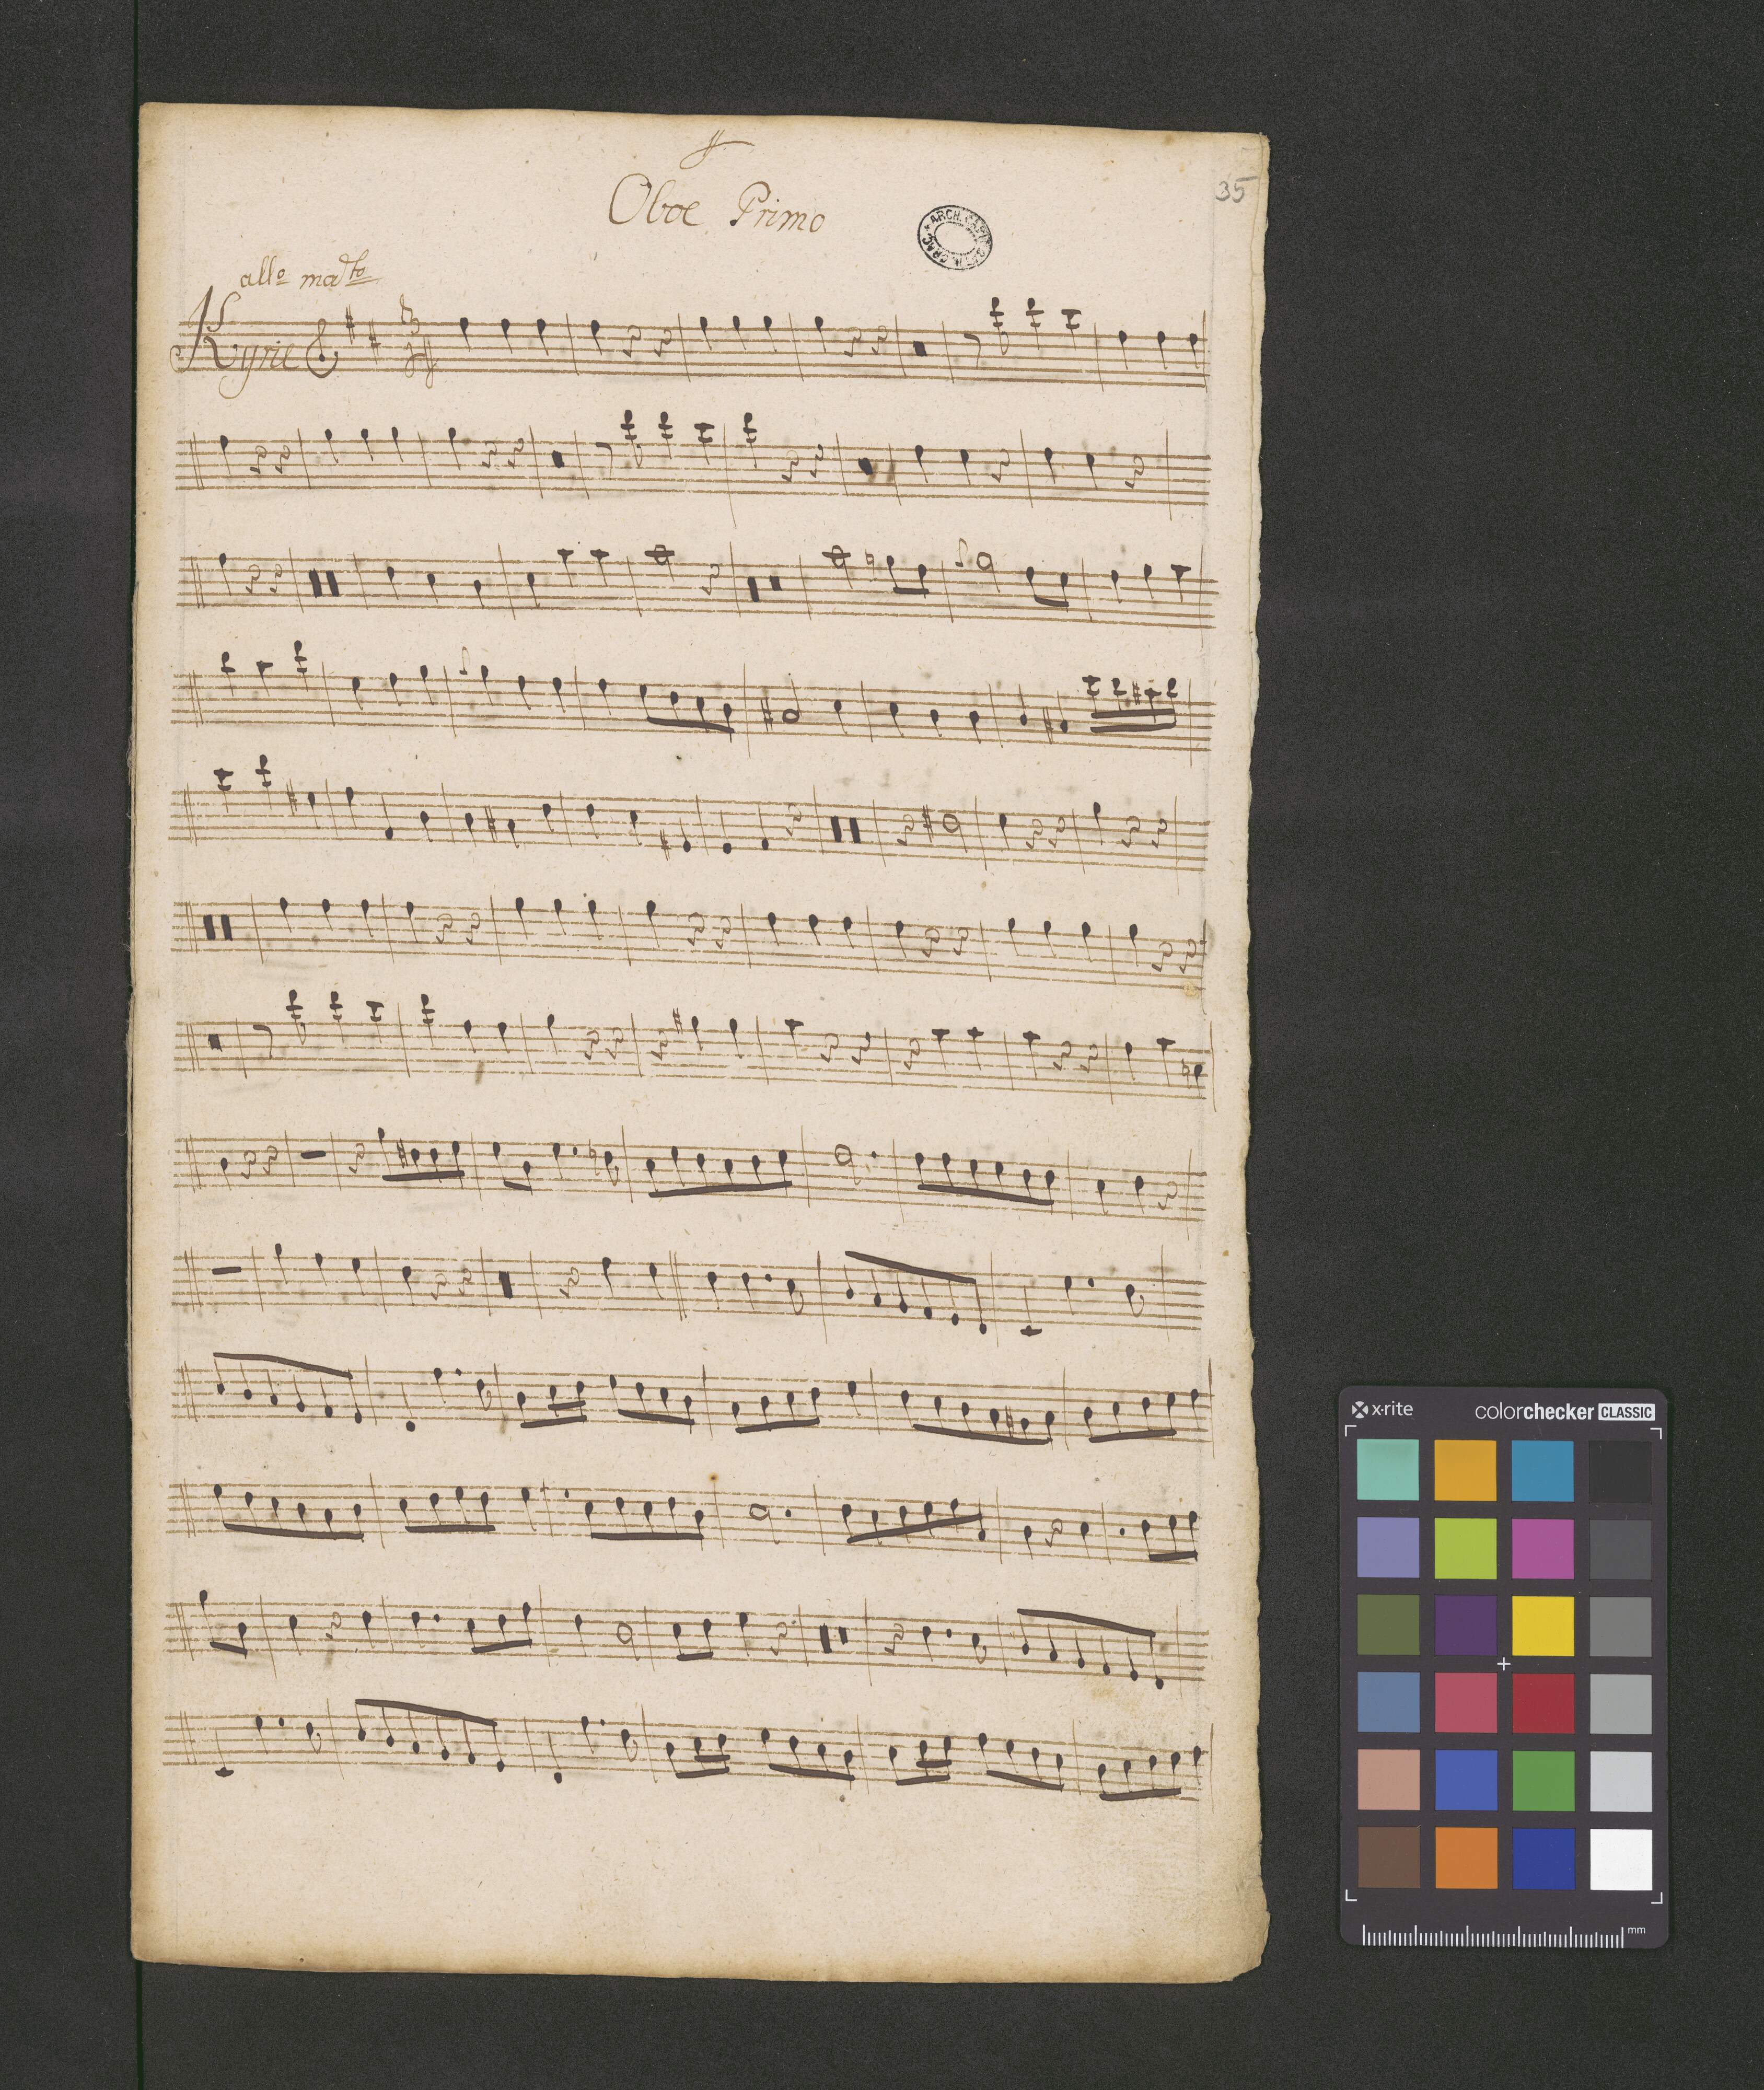 Oboe Primo
35
allo ma.to
Kyrie
3
4
x-rite
colorchecker CLASSIC
mm